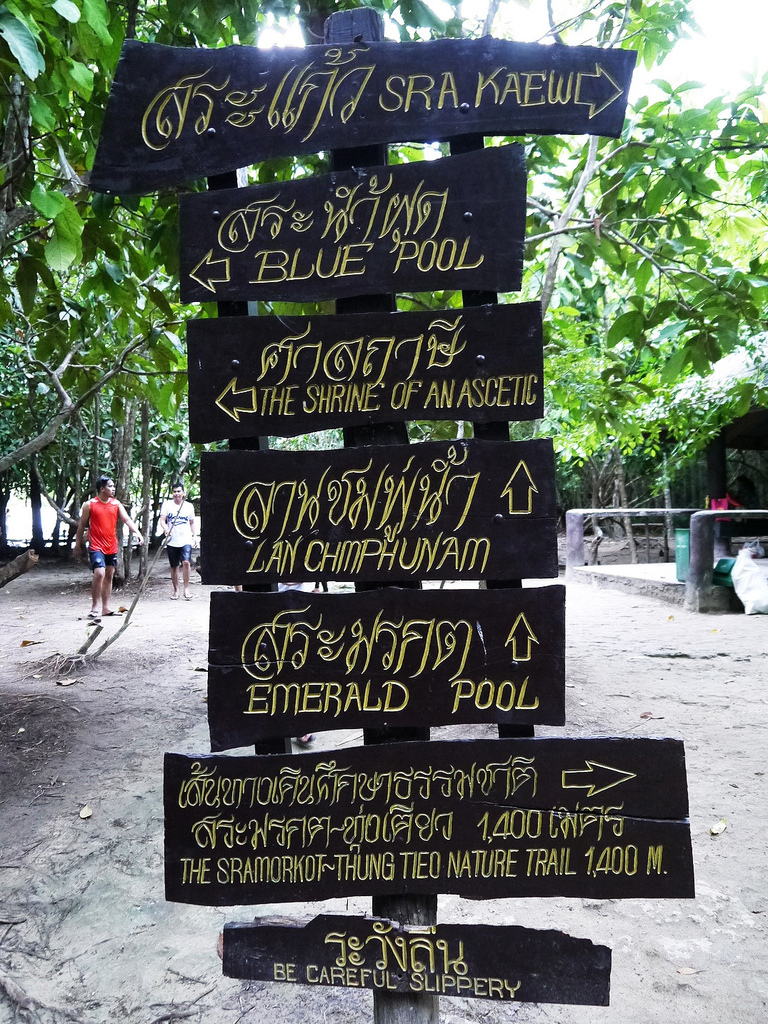 สระแก้ว SRA KAEW
สระน้ำผุด
BLUE POOL
ศาลฤาษี
THE SHRINE OF AN ASCETIC
ลานชมพู่น้ำ
LAN CHMPHUNAM
สระมรกต
EMERALD POOL
เส้นทางเดินศึกษาธรรมชาติ
สระมรกต~ทุ่งเตียว 1,400 เมตร
THE SRAMORKOT~THUNG TIEO NATURE TRAIL 1,400 M.
ระวังลื่น
BE CAREFUL SLIPPERY